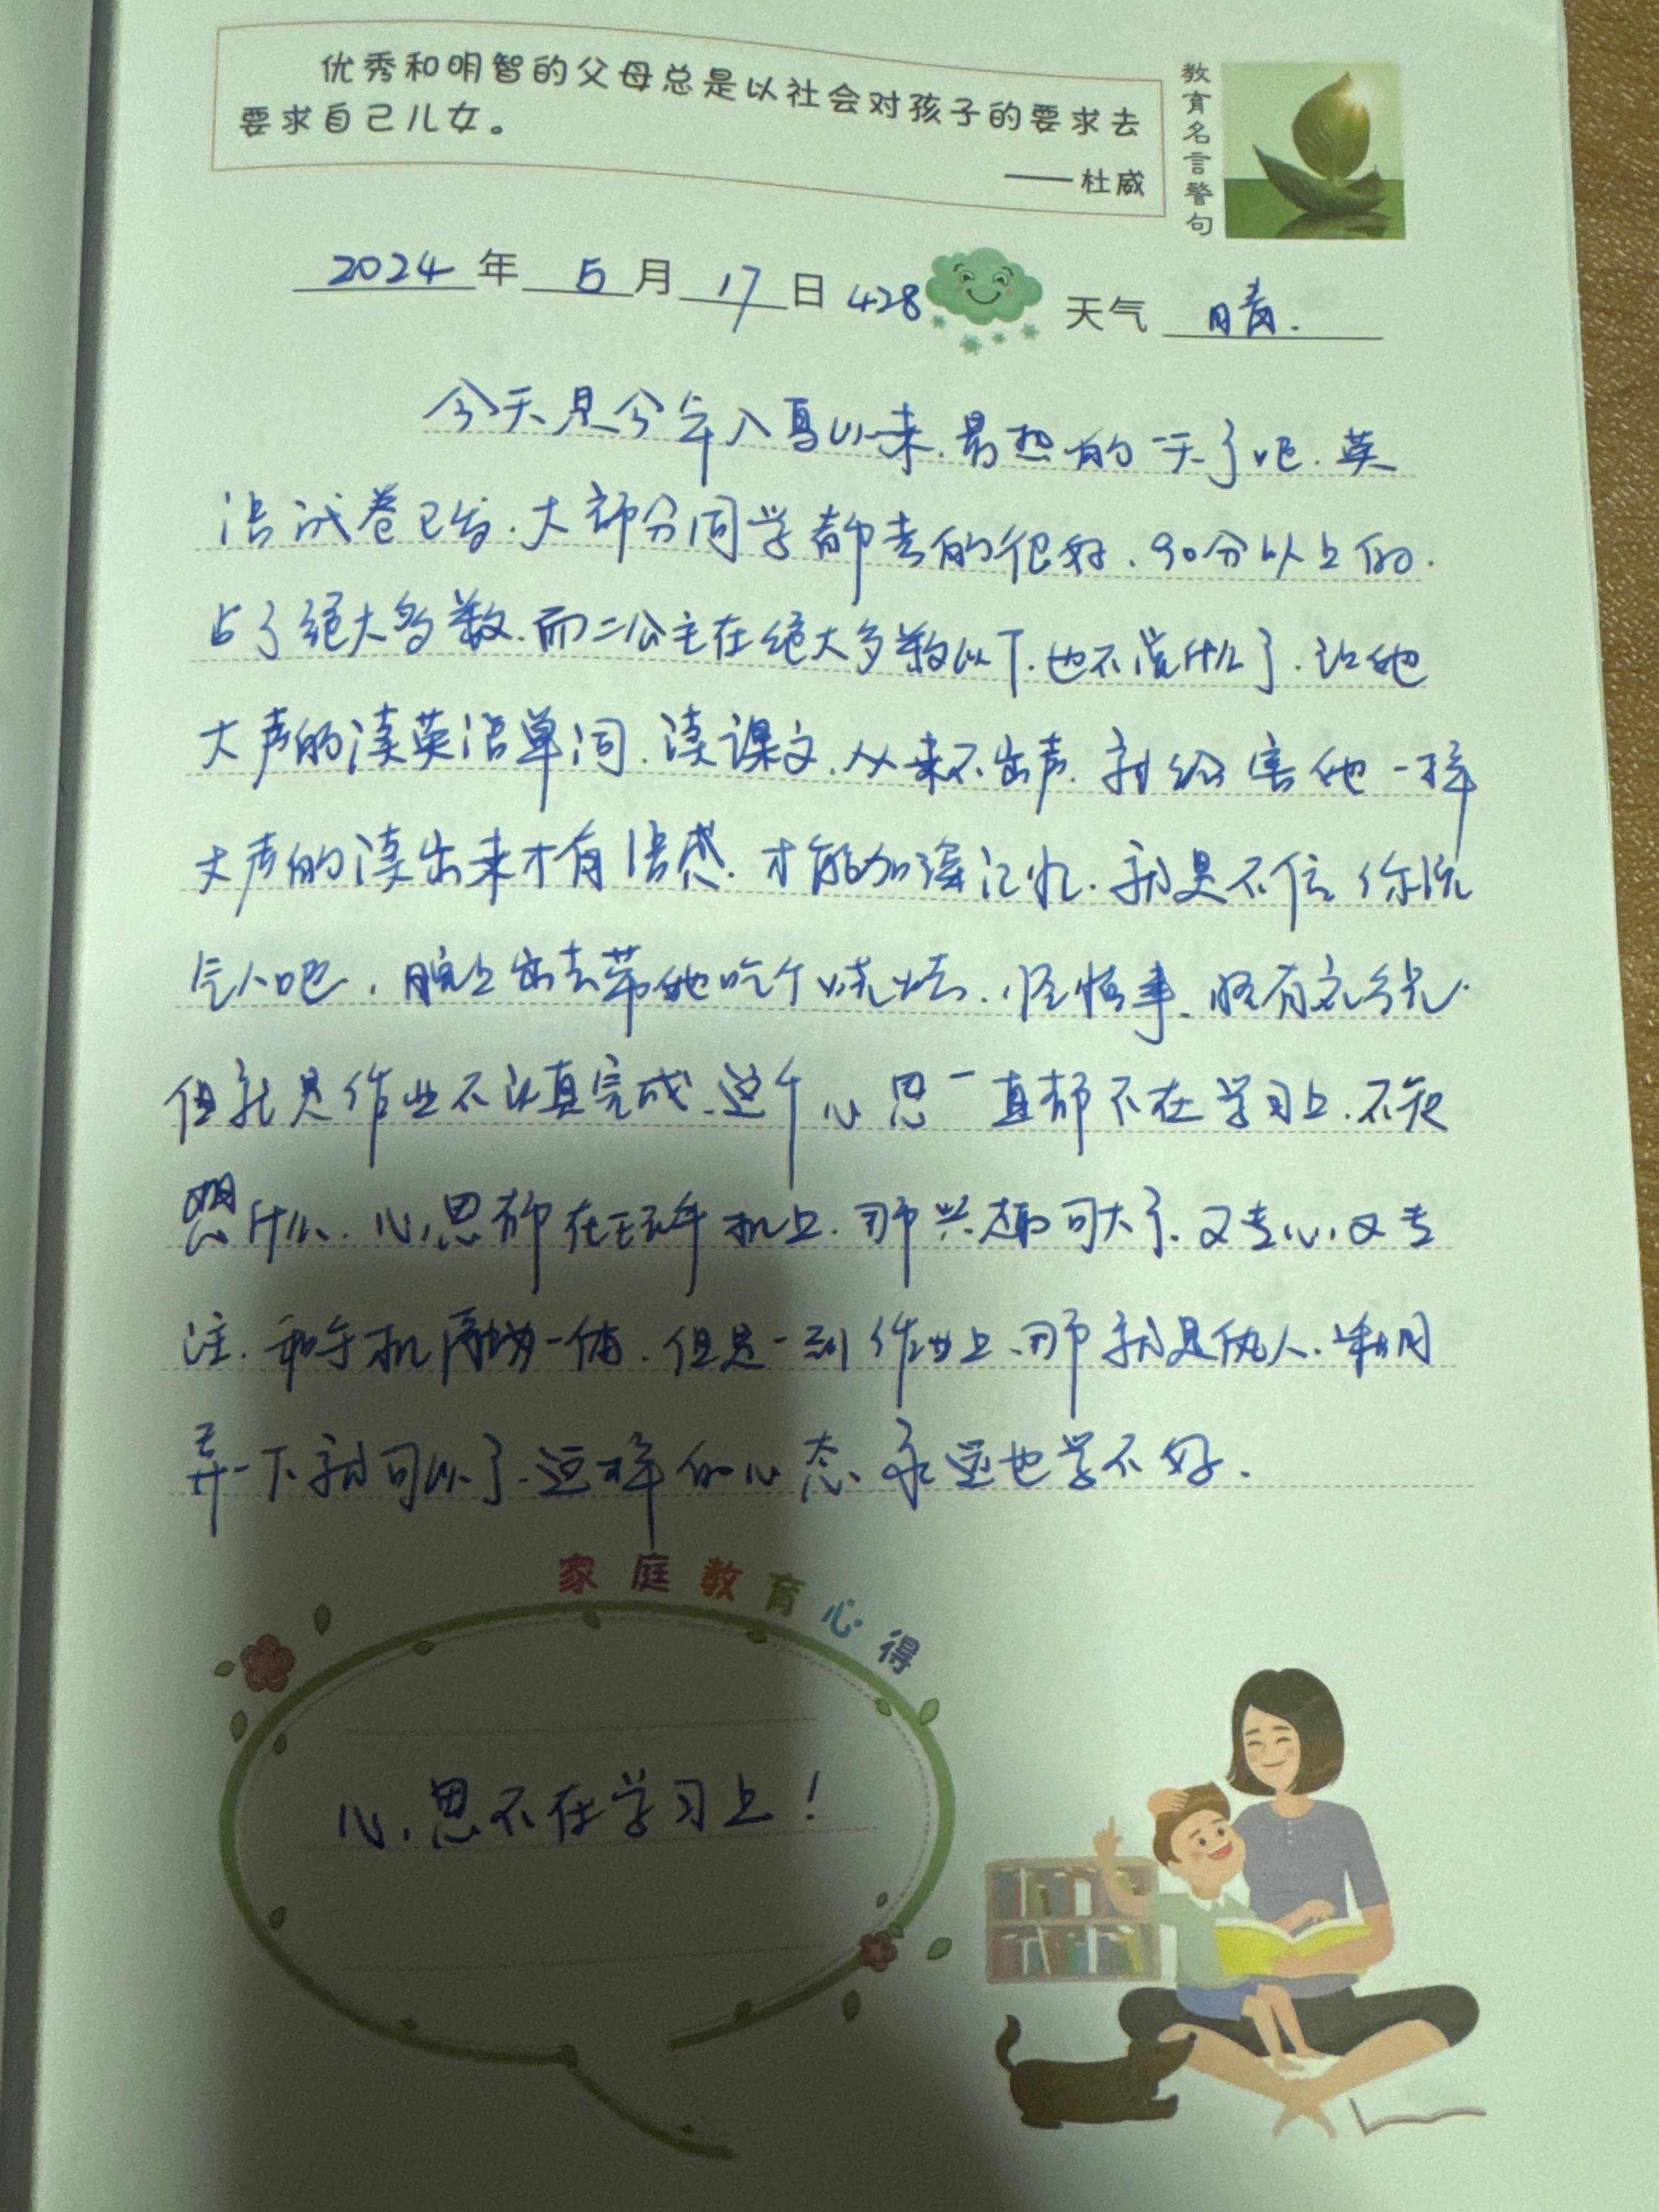 优秀和明智的父母总是以社会对孩子的要求去
要求自己儿女。
——杜威
教育名言警句
2024年5月17日 428 天气 晴.
今天是今年入夏以来.最热的一天了吧.英
语试卷已发.大部分同学都考的很好.90分以上的.
占了绝大多数.而二公主在绝大多数以下.也不说什么了.让她
大声的读英语单词.读课文.从来不出声.就给害她一样
大声的读出来才有语感.才能加深记忆.就是不信 你说
气人吧.晚上出去带她吃个烧烤.怪懂事.怪有礼貌.
但就是作业不认真完成.这个心思一直都不在学习上.不知
想什么.心思都在玩手机上.那兴趣可大了.又专心又专
注.和手机融为一体.但是一到作业上.那就是仇人.糊
弄一下就可以了.这样的心态.永远也学不好.
家庭教育心得
心思不在学习上!